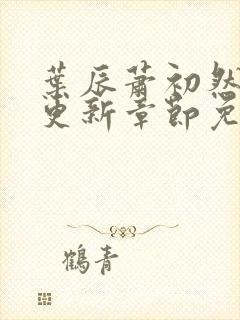 葉辰蕭初然
更新章節免
鶴青